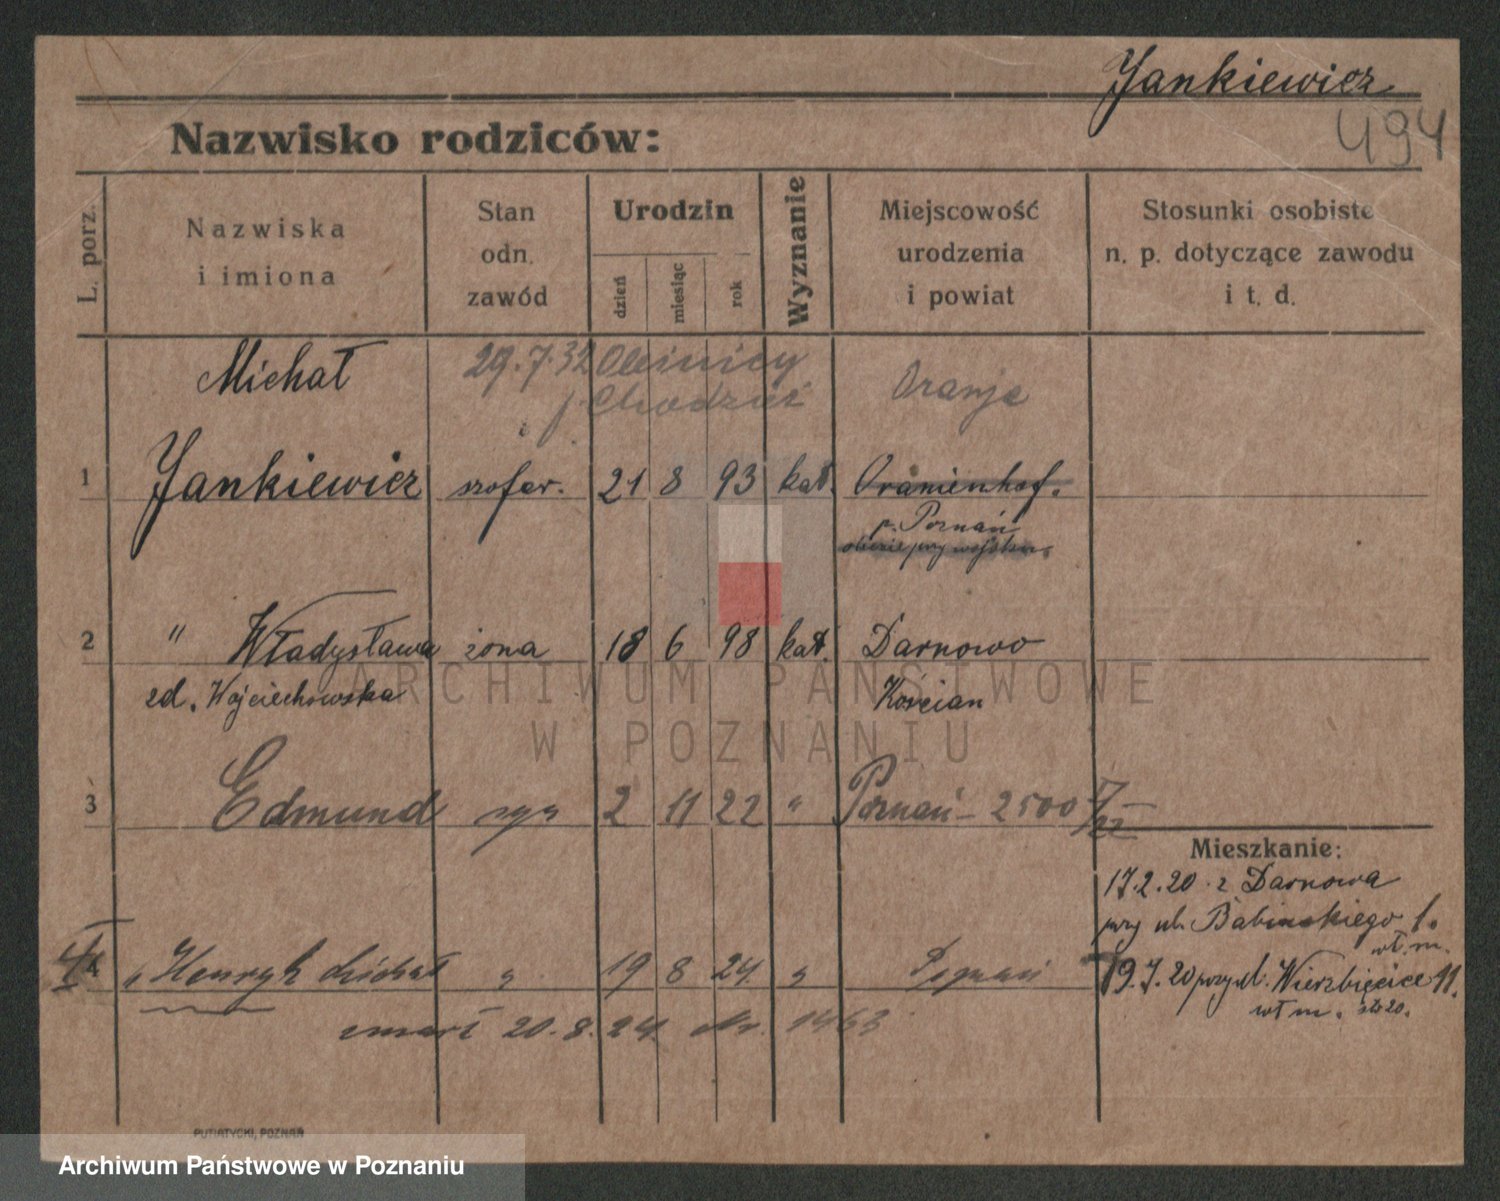 Jankiewicz
494
Nazwisko rodziców:
L. porz.
Nazwiska
i imiona
Stan
odn.
zawód
Urodzin
dzień
miesiąc
rok
Wyznanie
Miejscowość
urodzenia
i powiat
Stosunki osobiste
n. p. dotyczące zawodu
i t. d.
Michał 29.7.32 Oleśnicy Oranje
p. Chodzież
1 Jankiewicz szofer. 21 8 93 kat. Oranienhof.
p. Poznań
obecnie przy wojsku
2 " Władysława żona 18 6 98 kat. Darnowo
zd. Wojciechowska Kościan
3 Edmund syn 2 11 22 " Poznań - 2500
Mieszkanie:
17.2.20 z Darnowa
przy ul. Babinskiego 1.
wł. m.
4 " Henryk Michał " 19 8 24 " Poznań
19.7.20 przy ul. Wierzbięcice 11.
wł m.
zmarł 20.8.24 Nr. 1463
PUTIATYCKI, POZNAŃ
ARCHIWUM PAŃSTWOWE
W POZNANIU
Archiwum Państwowe w Poznaniu